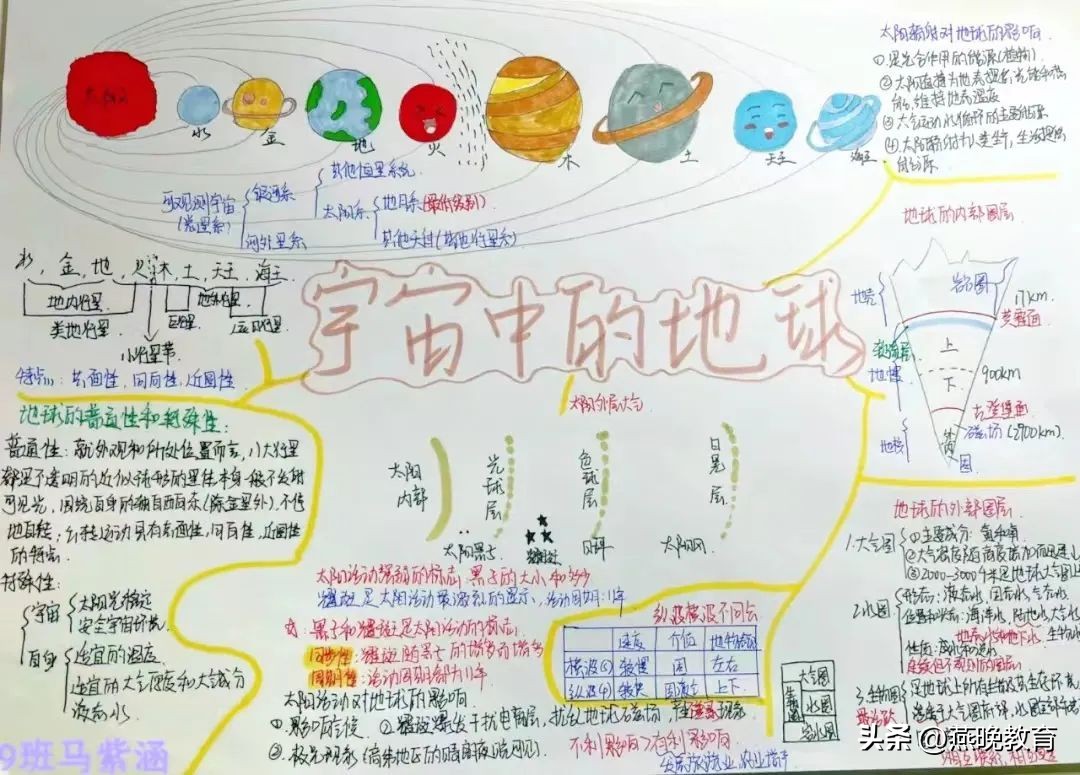 宇宙中的地球
太阳
水
金
地
火
木
土
天王
海王
可观测宇宙
(总星系)
银河系
河外星系
其他恒星系统
太阳系
地月系(最低级别)
其他天体(其他行星系)
水,金,地,火
木,土,天王,海王
地内行星
地外行星
类地行星
巨行星
远日行星
小行星带
特点:共面性,同向性,近圆性
地球的普遍性和特殊性:
普遍性:就外观和所处位置而言,八大行星
都是不透明的近似球形的星体本身一般不发射
可见光,
的特点.
特殊性:
宇宙
太阳光稳定
安全宇宙环境
自身
适宜的温度
适宜的大气厚度和大气成分
液态水
太阳辐射对地球的影响
①是光合作用的能源(植物)
能,维持地表温度
③大气运动水循环的主要能源
能源
地球的内部圈层
地壳
岩石圈
17km
莫霍面
软流层
地幔
上
下
900km
古登堡面
磁场(2900km)
地核
太阳外层大气
太阳
内部
光球层
色球层
日冕层
太阳黑子
耀斑
日珥
太阳风
太阳活动强弱的标志:黑子的大小和多少
耀斑是太阳活动最激烈的显示,活动周期:11年
黑子和耀斑是太阳活动的标志.
同步性:耀斑随黑子的增多而增多
周期性:活动周期都为11年
太阳活动对地球的影响
①影响气候
②耀斑爆发干扰电离层,扰乱地球磁场,产生磁暴现象
③极光现象
不利影响
有利影响
纵波横波不同点
速度
介质
横波(S)
较慢
固
左右
纵波(P)
较快
固液气
上下
大气圈
生物圈
水圈
岩石圈
地球的外部圈层
1.大气圈
①主要成分:氮和氧
②大气密度随高度增加而迅速
③2000-3000千米是地球大气圈上
2.水圈
形态:液态水,固态水,气态水
位置和状态:海洋水,陆地水,大气水
地表水和地下水,生物水
连续但不规则的圈层
3.生物圈
最活跃
是地球上所有生物及其生存环境
9班马紫涵
头条@燕晚教育